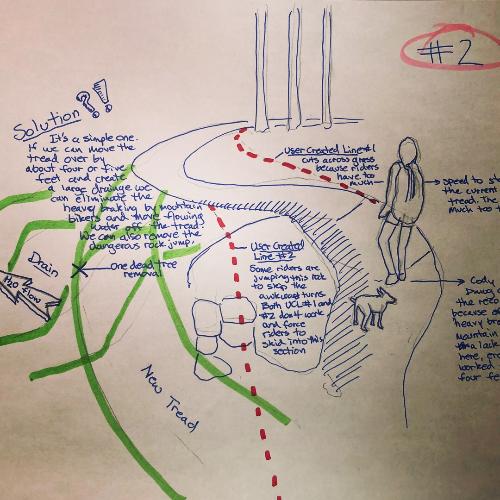 #2
Solution ?!
It's a simple one.
If we can move the
tread over by
about four or five
feet and create
a large drainage we
can eliminate the
heavy braking by mountain
bikers and move flowing
water off the tread.
We can also remove the
dangerous rock jump.
User Created Line #1
cuts across grass
because riders
have too
much
speed to
the current
tread. The
much too
Drain
H2O Flow
One dead tree
removal
User Created
Line #2
Some riders are
jumping this rock
to skip the
awkward turns.
Both UCL #1 and
#2 don't work
and force
riders to
skid into this
section
Cody
because of
heavy br
Mountain
lack
here,
worked
four fe
New Tread